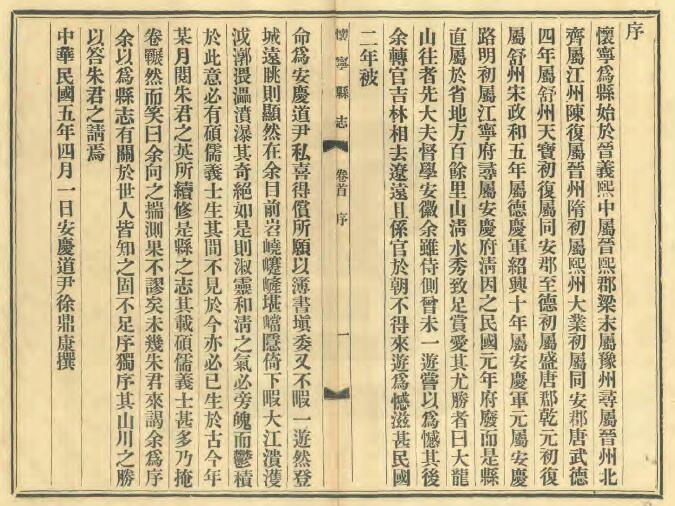 序
懷寧爲縣始於晉義熙中屬晉熙郡梁末屬豫州尋屬晉州北
齊屬江州陳復屬晉州隋初屬熙州大業初屬同安郡唐武德
四年屬舒州天寶初復屬同安郡至德初屬盛唐郡乾元初復
屬舒州宋政和五年屬德慶軍紹興十年屬安慶軍元屬安慶
路明初屬江寧府尋屬安慶府淸因之民國元年府廢而是縣
直屬於省地方百餘里山淸水秀致足賞愛其尤勝者曰大龍
山往者先大夫督學安徽余雖侍側曾未一遊嘗以爲憾其後
余轉官吉林相去遼遠且係官於朝不得來遊爲憾滋甚民國
二年被
懷寧縣志
卷首
序
一
命爲安慶道尹私喜得償所願以簿書塡委又不暇一遊然登
城遠眺則顯然在余目前岩嶢嶁嵂堪嶝隱倚下暇大江潰濩
泧漷渨㵽濆瀑其奇絕如是則淑靈和淸之氣必旁魄而鬱積
於此意必有碩儒義士生其間不見於今亦必已生於古今年
某月閱朱君之英所續修是縣之志其載碩儒義士甚多乃掩
卷囅然而笑曰余向之揣測果不謬矣未幾朱君來謁余爲序
余以爲縣志有關於世人皆知之固不足序獨序其山川之勝
以答朱君之請焉
中華民國五年四月一日安慶道尹徐鼎康撰